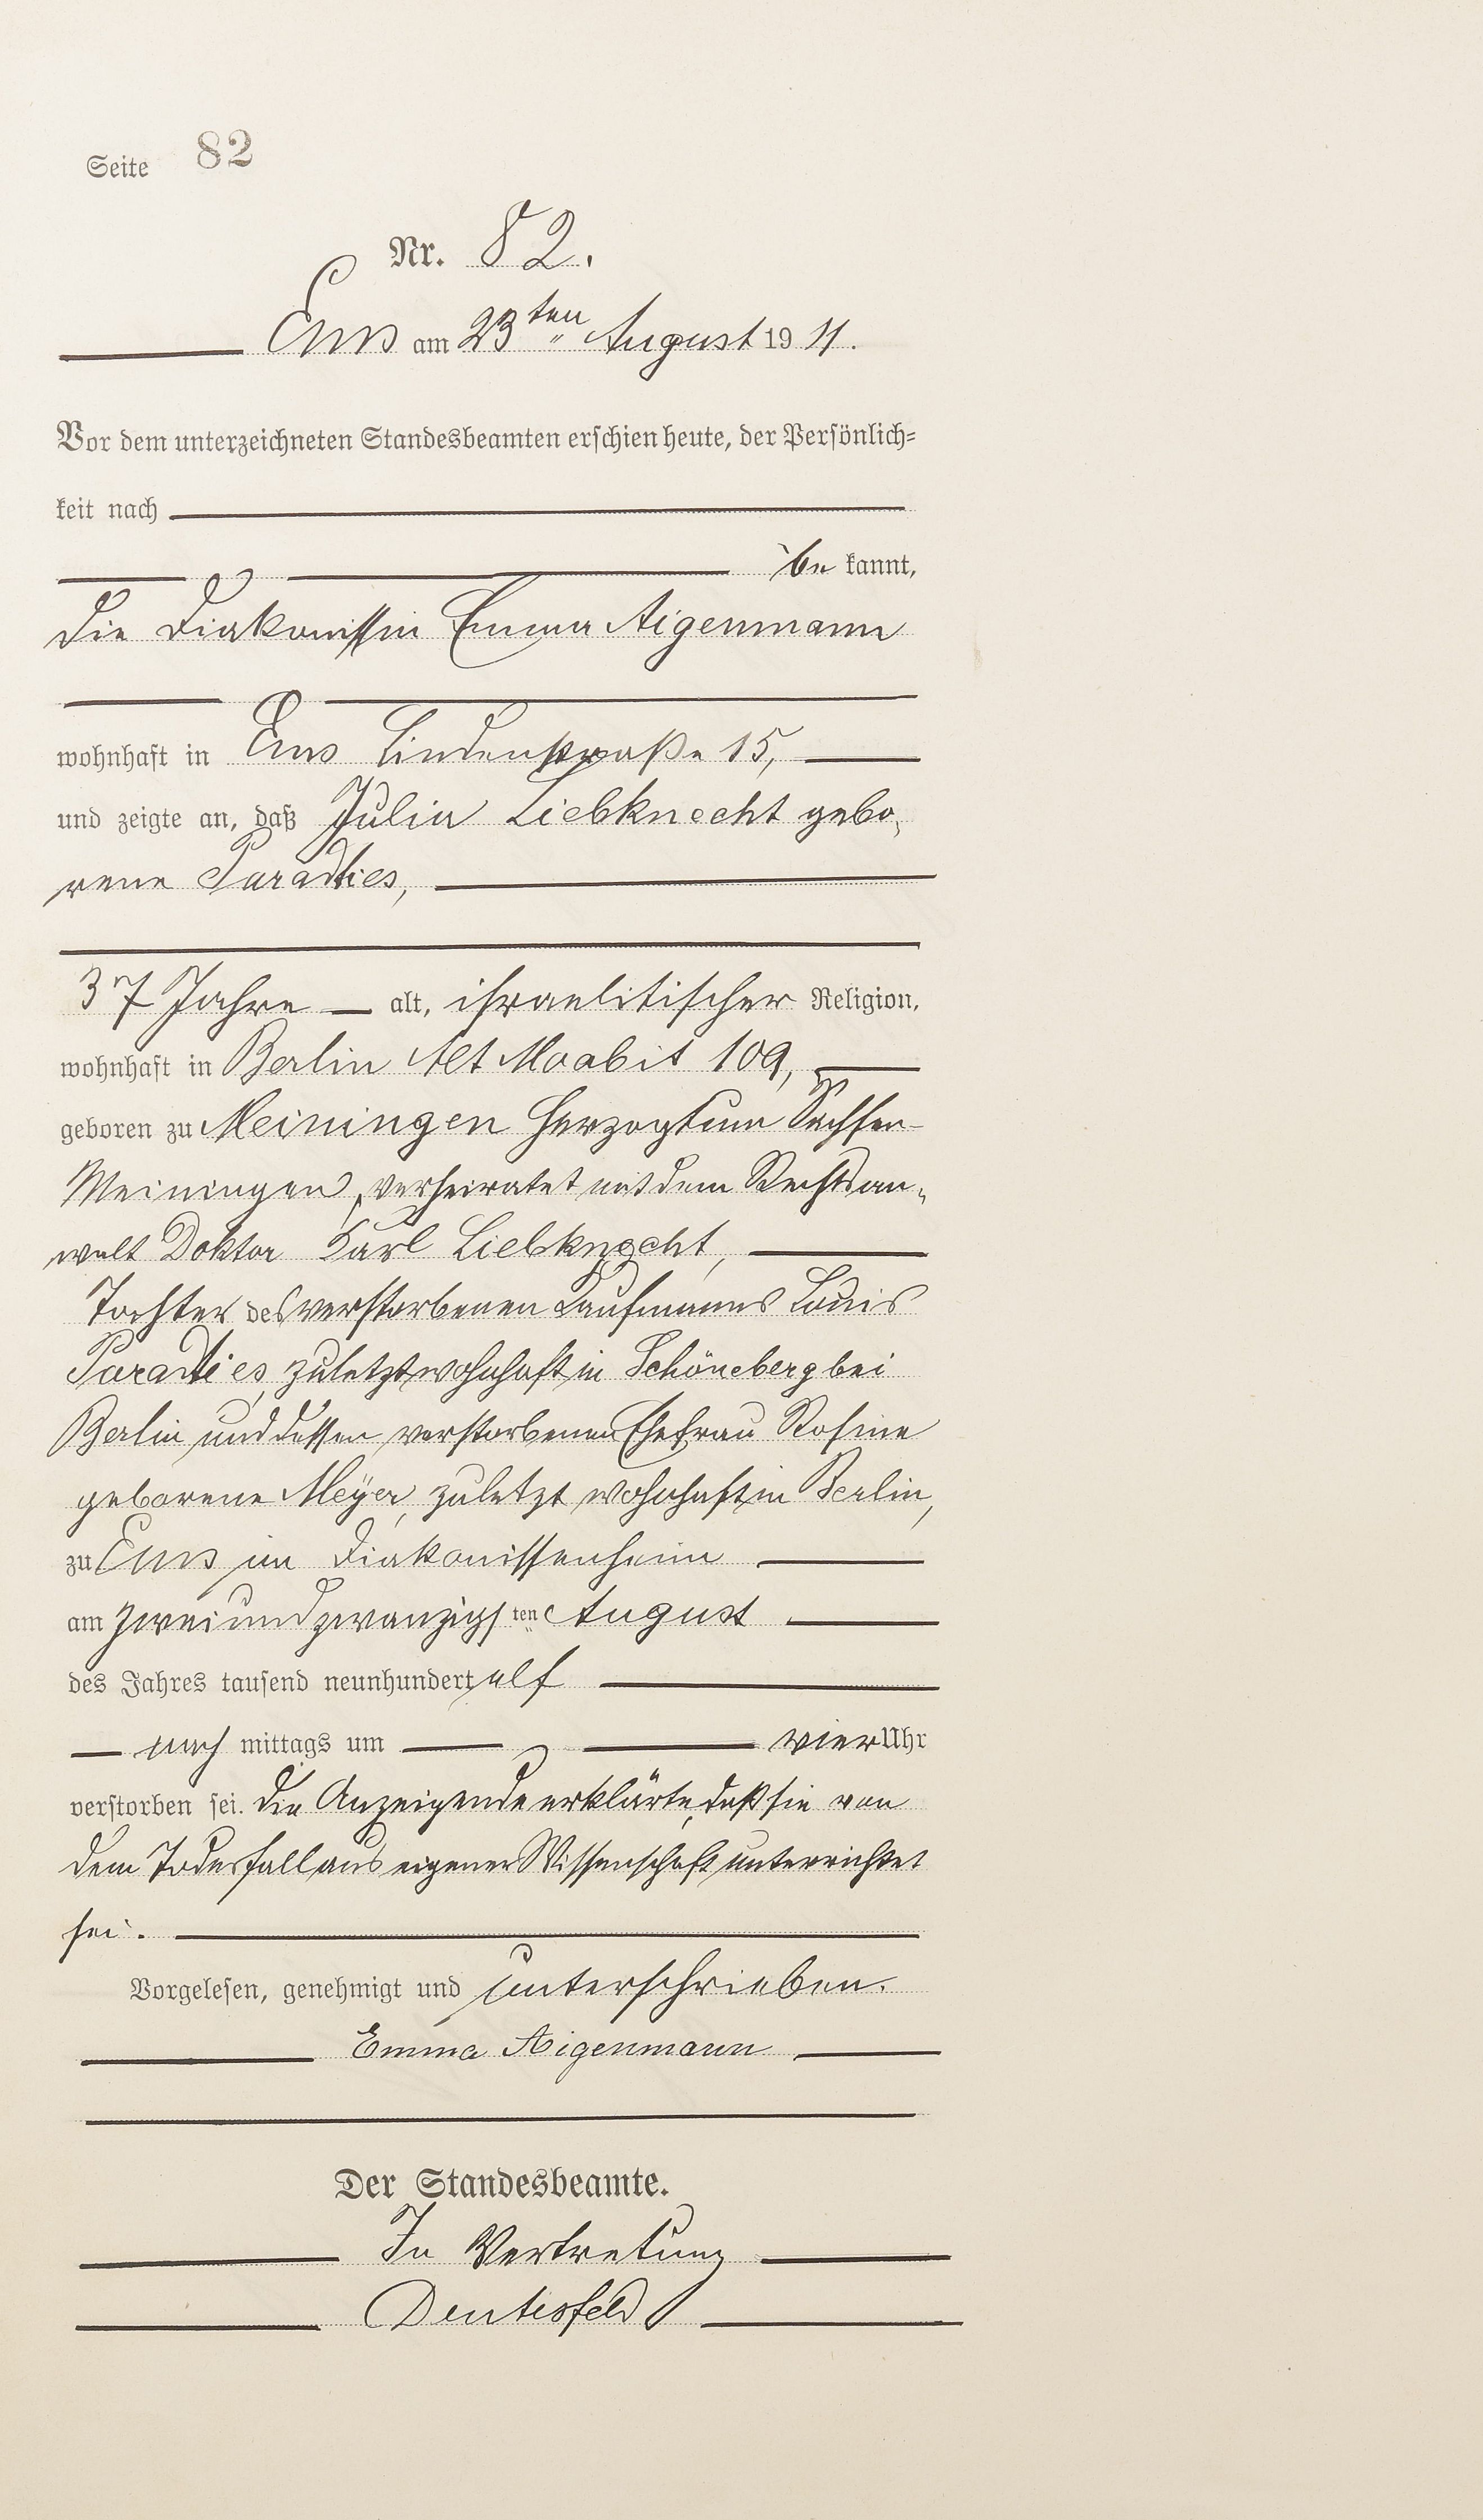 Seite 82
Nr. 82.
Ems am 23ten August 1911.
Vor dem unterzeichneten Standesbeamten erschien heute, der Persönlich=
keit nach
be kannt,
die Diakonissin Emma Aigenmann
wohnhaft in Ems Lindenstraße 15,
und zeigte an, daß Julia Liebknecht gebo„
rene Paradies,
37 Jahre alt, israelitischer Religion,
wohnhaft in Berlin Alt Moabit 109,
geboren zu Meiningen Herzogtum Sachsen-
Meiningen, verheiratet mit dem Rechtsan„
walt Doktor Karl Liebknecht,
Tochter des verstorbenen Kaufmanns Louis
Paradies, zuletzt wohnhaft in Schöneberg bei
Berlin und dessen verstorbenen Ehefrau Rosine
geborene Meÿer, zuletzt wohnhaft in Berlin,
zu Ems im Diakonissenheim
am zweiundzwanzigsten August
des Jahres tausend neunhundert elf
nach mittags um vier Uhr
verstorben sei. Die Anzeigende erklärte, daß sie von
dem Todesfall aus eigener Wissenschaft unterrichtet
sei.
Vorgelesen, genehmigt und unterschrieben.
Emma Aigenmann
Der Standesbeamte.
In Vertretung